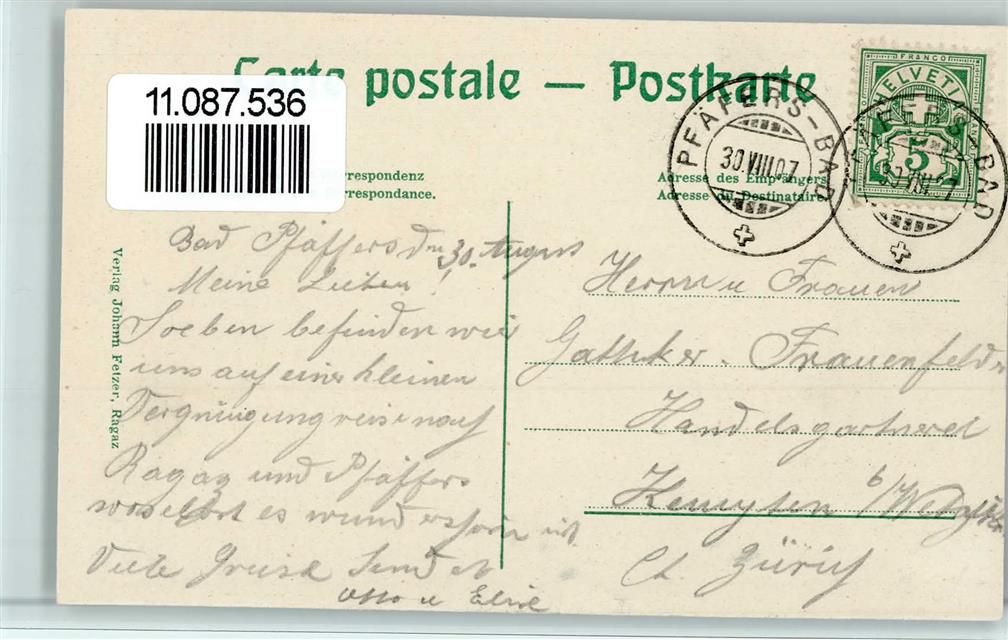 11.087.536
Carte postale — Postkarte
rrespondenz
rrespondance.
Adresse des Empfängers
Adresse du Destinataire
PFÄFERS-BAD
30.VIII.07
PFÄFERS-BAD
30.VIII.07
FRANCO
HELVETIA
5
Verlag Johann Fetzer, Ragaz
Bad Pfäffers den 30. August
Meine Lieben!
Soeben befinden wir
uns auf einer kleinen
Vergnügungsreise nach
Ragaz und Pfäffers
woselbst es wunderschön ist.
Viele Grüsse sendet
Otto u Elise
Herrn u Frauen
Frauenfelder
Handelsgärtnerei
Kempten b/Wetzikon
Ct. Zürich